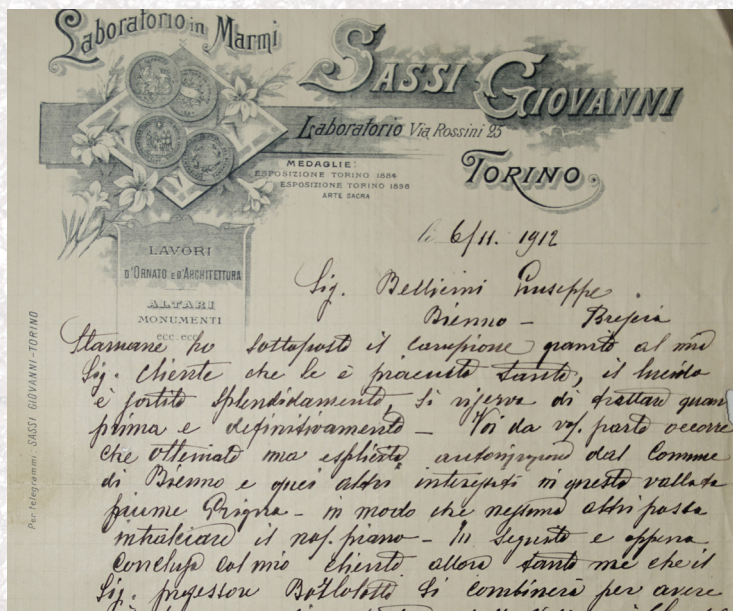 Laboratorio in Marmi
SASSI GIOVANNI
Laboratorio Via Rossini 25
TORINO
MEDAGLIE:
ESPOSIZIONE TORINO 1884
ESPOSIZIONE TORINO 1898
ARTE SACRA
LAVORI
D'ORNATO E D'ARCHITETTURA
ALTARI
MONUMENTI
ecc. ecc.
Per telegrammi: SASSI GIOVANNI-TORINO
li 6/11. 1912
Sig. Bellicini Giuseppe
Bienno - Brescia
Stamane ho sottoposto il campione granito al mio
Sig. cliente che le è piaciuto tanto, il lucido
è sortito splendidamente, si riserva di trattare quan
prima e definitivamente - Voi da vos. parte occorre
che otteniate una esplicita autorizzazione dal Comune
di Bienno e quei altri interessati in questa vallata
fiume Grigna - in modo che nessuno altri possa
intralciare il nos. piano - In seguito e appena
concluso col mio cliente allora tanto me che il
Sig. professore si combinerà per avere